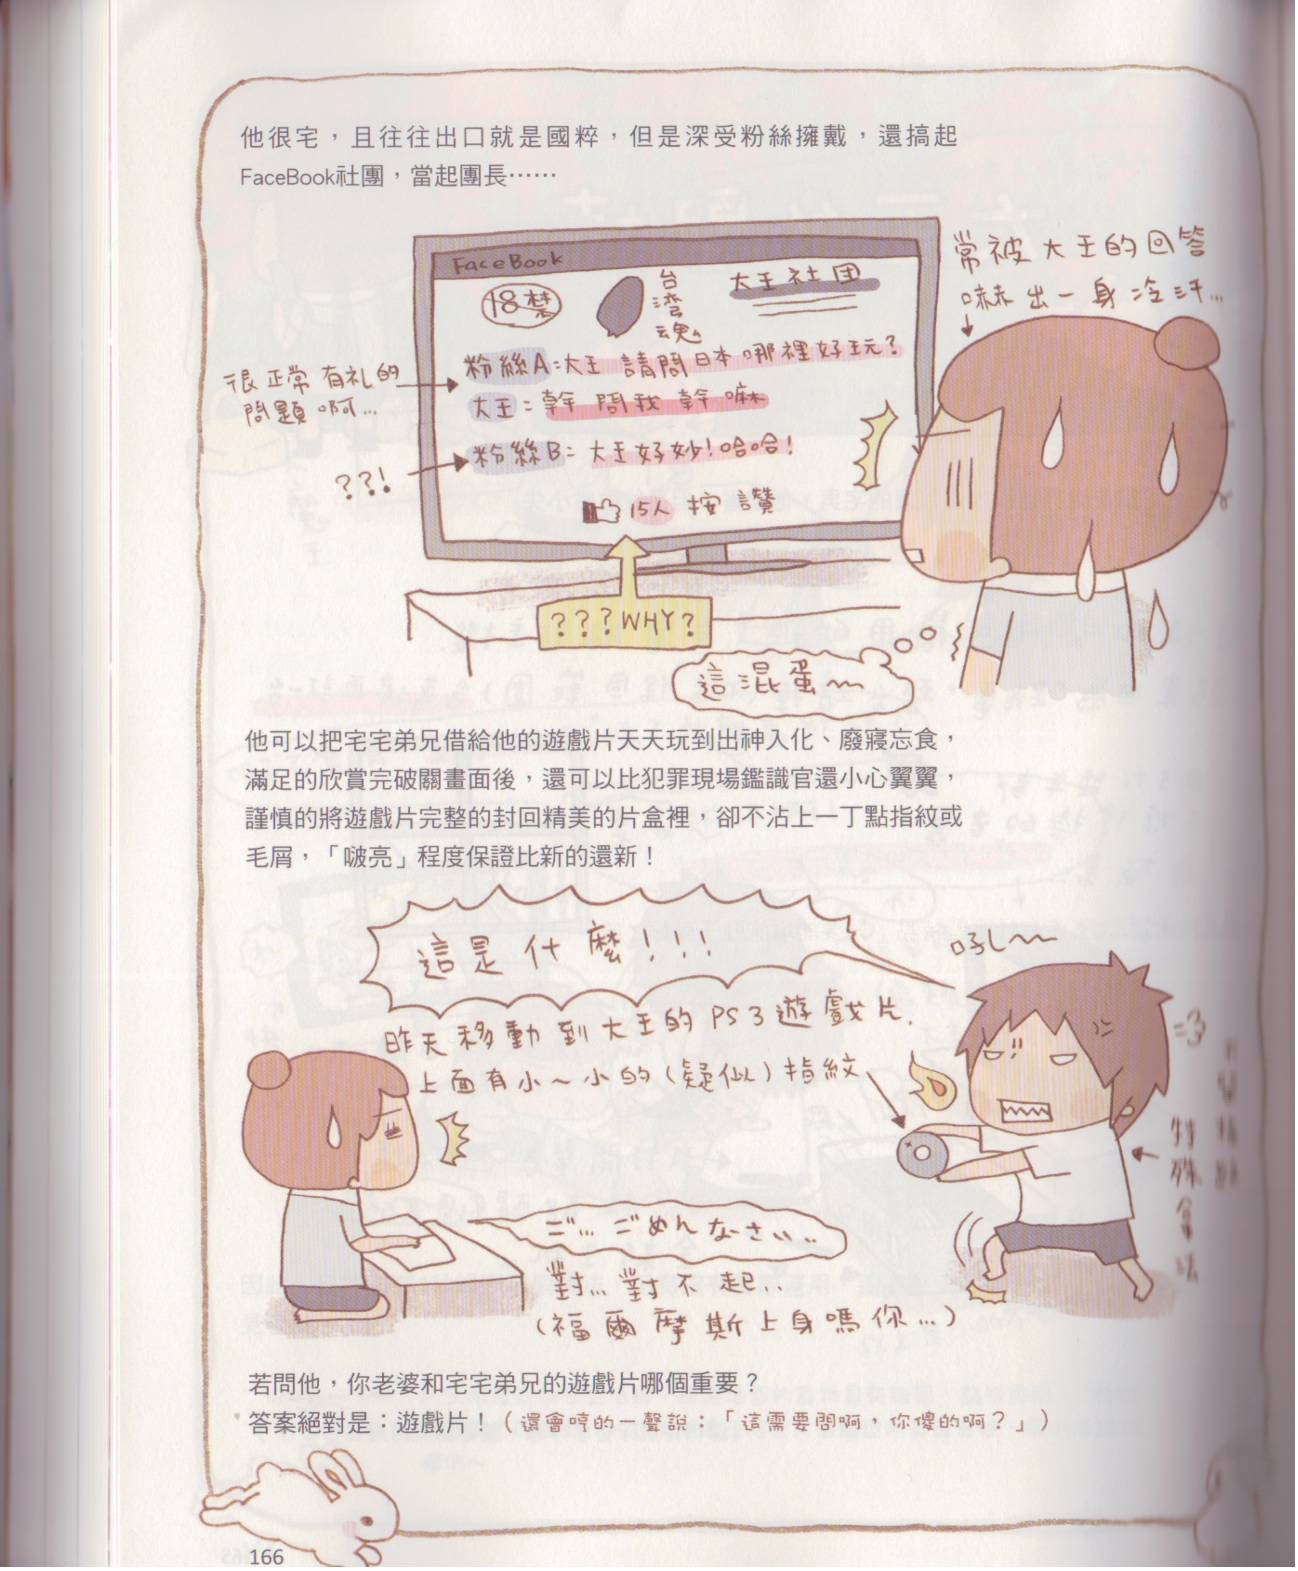 他很宅，且往往出口就是國粹，但是深受粉絲擁戴，還搞起
FaceBook社團，當起團長……
FaceBook
18禁
台灣魂
大王社团
粉絲A:大王 請問日本哪裡好玩?
大王:幹 問我 幹嘛
粉絲B:大王好妙!哈哈!
15人 按讚
很正常有礼的
問題啊...
??!
常被大王的回答
嚇出一身冷汗...
???WHY?
這混蛋~~
他可以把宅宅弟兄借給他的遊戲片天天玩到出神入化、廢寢忘食，
滿足的欣賞完破關畫面後，還可以比犯罪現場鑑識官還小心翼翼，
謹慎的將遊戲片完整的封回精美的片盒裡，卻不沾上一丁點指紋或
毛屑，「啵亮」程度保證比新的還新！
這是什麼!!!
吼~~
昨天移動到大王的PS3遊戲片.
上面有小~小的(疑似)指紋
特殊拿法
ご... ごめんなさい...
對...對不起..
(福爾摩斯上身嗎你...)
若問他，你老婆和宅宅弟兄的遊戲片哪個重要？
答案絕對是：遊戲片！（還會哼的一聲說：「這需要問啊，你傻的啊？」）
166